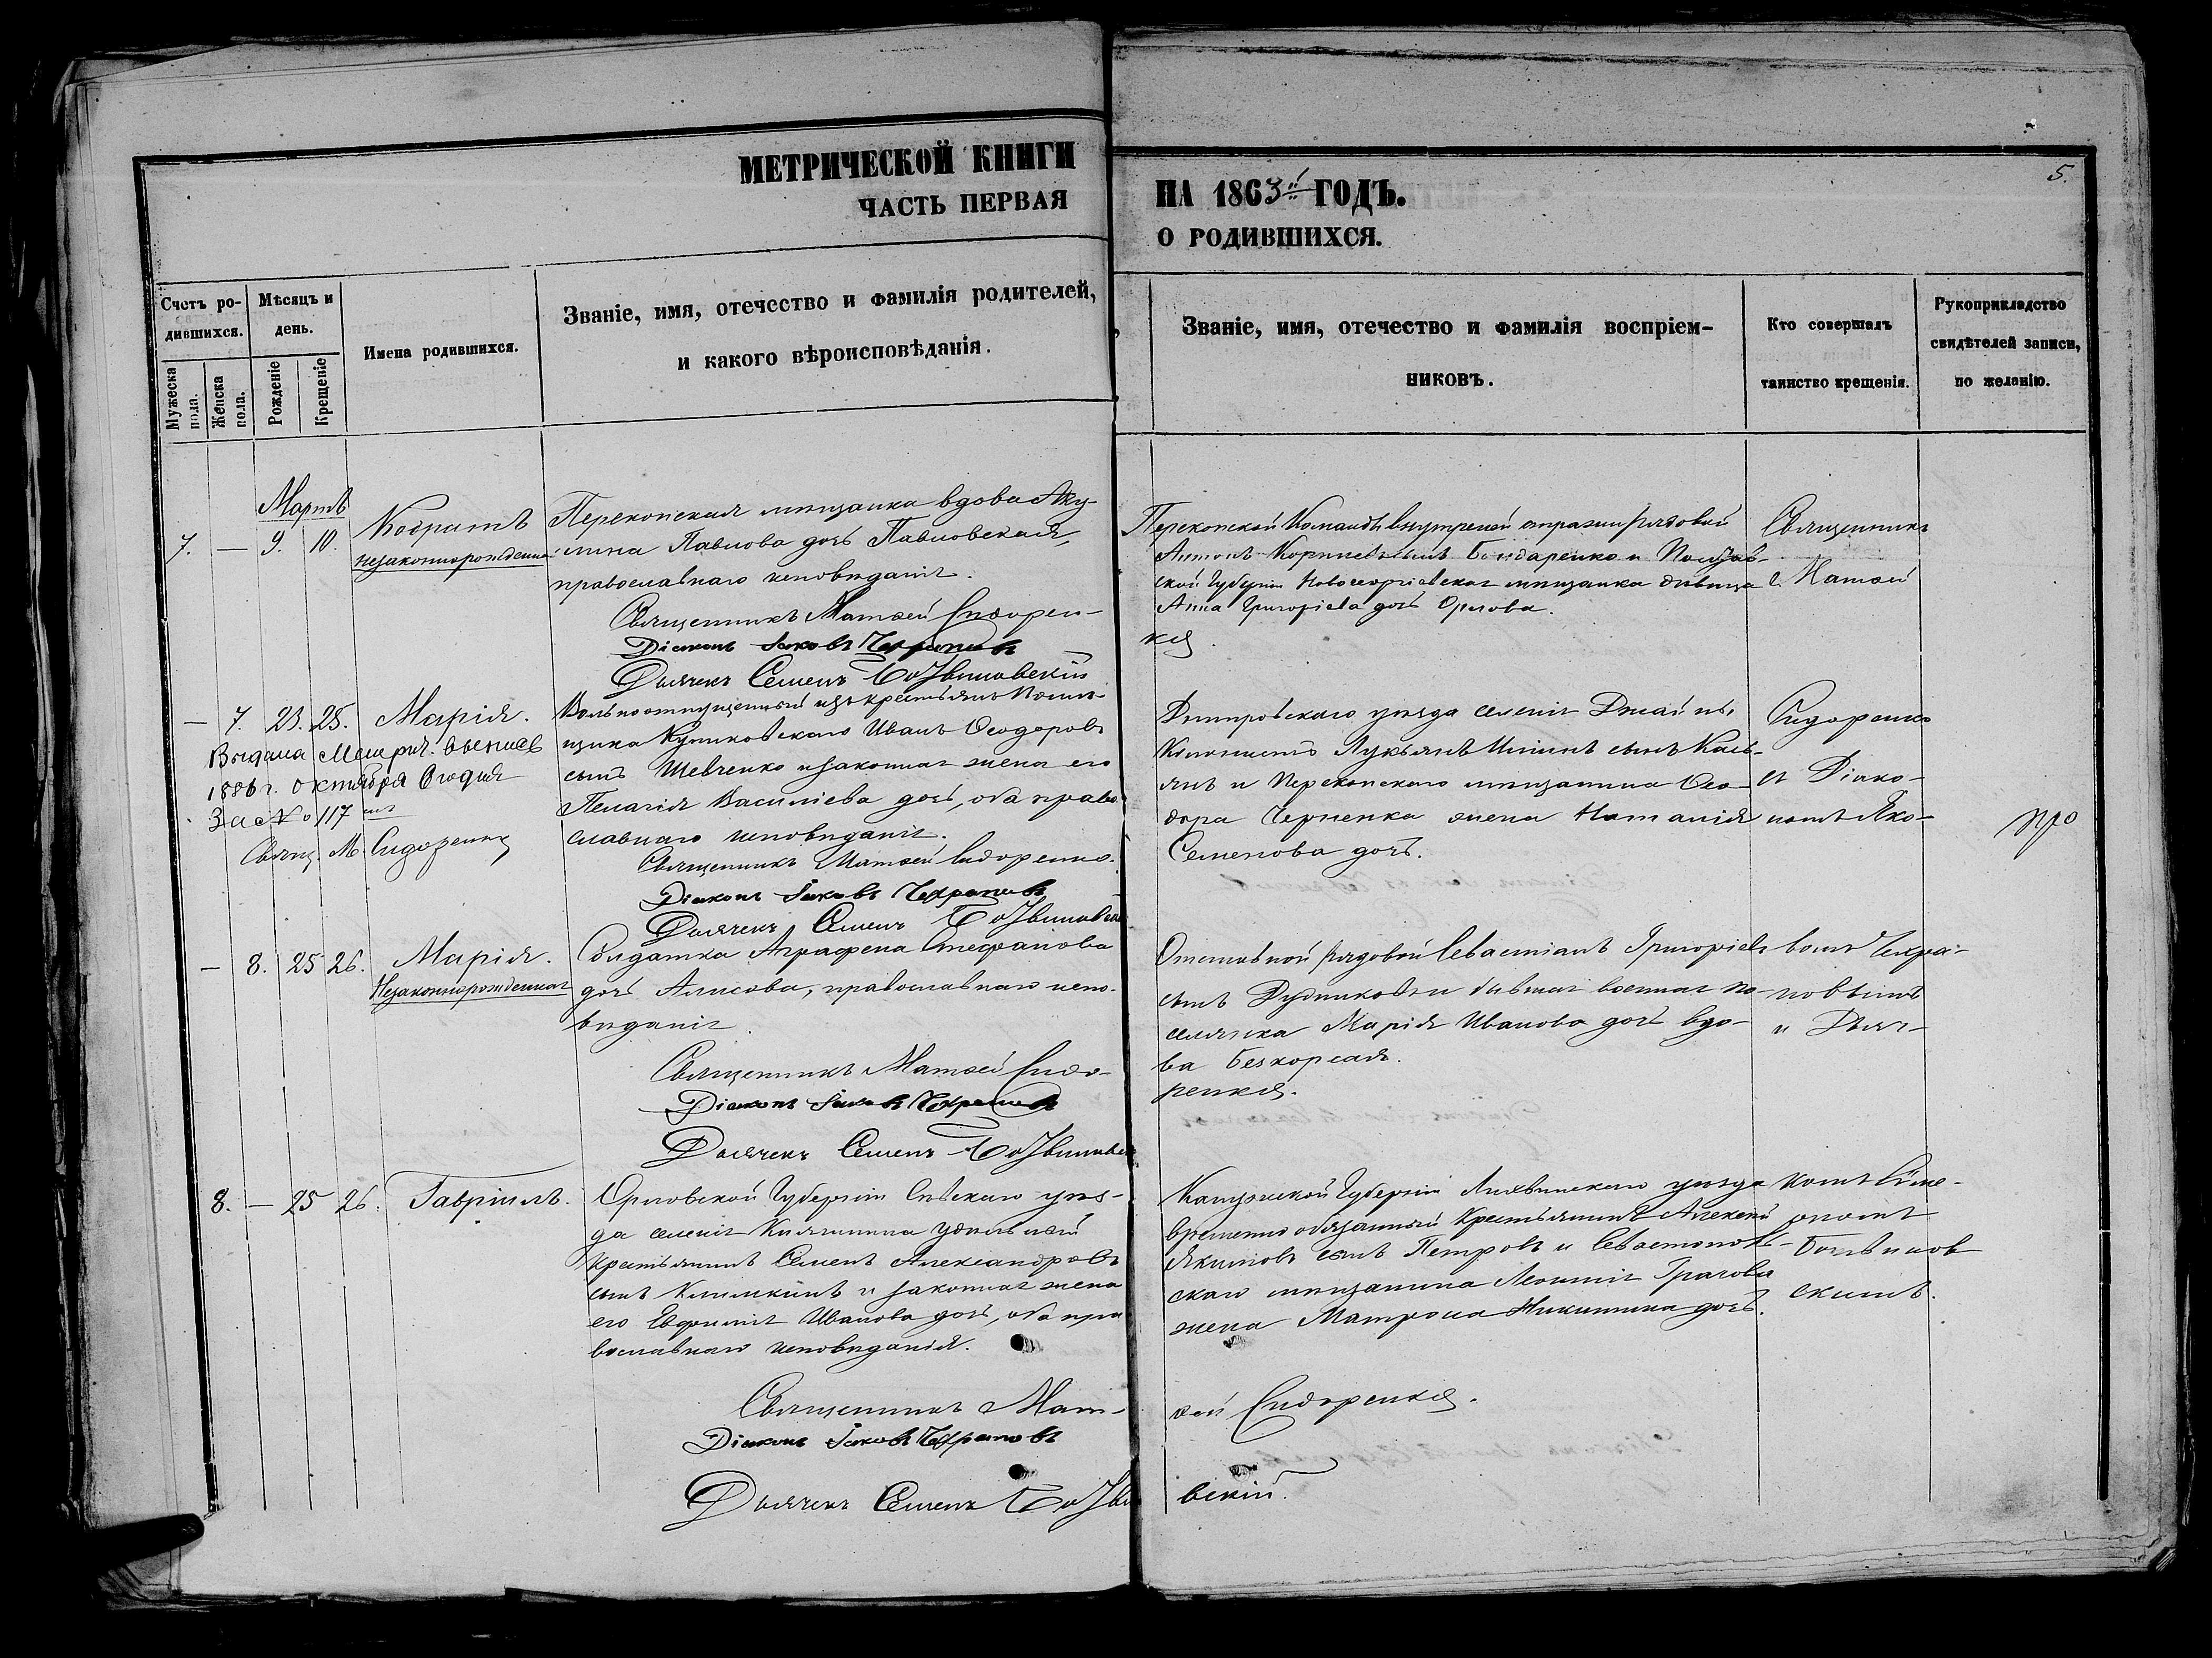 МЕТРИЧЕСКОЙ КНИГИ
ЧАСТЬ ПЕРВАЯ
НА 1863й ГОДЪ.
О РОДИВШИХСЯ.
5.
Счетъ ро-
дившихся.
Мужеска пола.
Женска пола.
Мѣсяцъ и
день.
Рожденіе
Крещеніе
Имена родившихся.
Званіе, имя, отечество и фамилія родителей,
и какого вѣроисповѣданія.
Званіе, имя, отечество и фамилія воспріем-
никовъ.
Кто совершалъ
таинство крещенія.
Рукоприкладство
свидѣтелей записи,
по желанію.
Мартъ
7. — 9. 10.
Кодратъ
незаконнорожденный
Перекопская мѣщанка вдова Аку-
лина Павлова дочь Павловская,
православнаго исповѣданія.
Священникъ Матѳей Сидорен-
кo
Діаконъ Іаковъ Чехрановъ
Дьячекъ Семенъ
Перекопской Команды внутреней стражи рядовой
Антонъ сынъ Бондаренко и Полтав-
ской Губерніи Новогеоргіевская мѣщанка дѣвица
Анна Григоріева дочь Орлова.
Священникъ
Матѳей
— 7. 23. 25. Марія.
Выдана Метрич. выпись
1886 г. Октября
За № 117
Свящ. М. Сидоренко
Вольноотпущенный изъ крестьянъ Помѣ-
щика Куликовскаго Иванъ Ѳеодоровъ
сынъ Шевченко и законная жена его
Пелагія Василіева дочь, оба право-
славнаго исповѣданія.
Священникъ Матѳей Сидоренко.
Діаконъ Іаковъ Чехрановъ
Дьячекъ Семенъ
Днѣпровскаго уѣзда селенія
Колонистъ Лукьянъ сынъ Кась-
янъ и Перекопскаго мѣщанина Ѳео-
дора Черненка жена Наталія
Семенова дочь.
Сидоренко
съ Діако-
номъ Яко-
про
— 8. 25 26. Марія.
Незаконнорожденная
Солдатка Аграфена Стефанова
дочь Алисова, православнаго испо-
вѣданія.
Священникъ Матѳей Сидо-
ренкo.
Діаконъ Іаковъ Чехрановъ
Дьячекъ Семенъ
Отставной рядовой Севастіанъ Григоріевъ
сынъ Дудниковъ и бывшая военная по-
селянка Марія Иванова дочь вдо-
ва Безкорсая.
вомъ Чехра-
новымъ
и Дьяч-
8. — 25 26. Гавріилъ.
Орловской Губерніи Сѣвскаго уѣз-
да селенія Княгинина удѣльный
крестьянинъ Семенъ Александровъ
сынъ Климкинъ и законная жена
его Евфимія Иванова дочь, оба пра
вославнаго исповѣданія.
Священникъ Мат-
ѳей Сидоренко.
Діаконъ Іаковъ Чехрановъ
Дьячекъ Семенъ
вскій.
Калужской Губерніи Лихвинскаго уѣзда
временно обязанный крестьянинъ Алексѣй
Якимовъ сынъ Петровъ и Севастополь-
скаго мѣщанина Леонтія Грачова
жена Матрона Никитина дочь.
комъ Симе-
ономъ
скимъ.